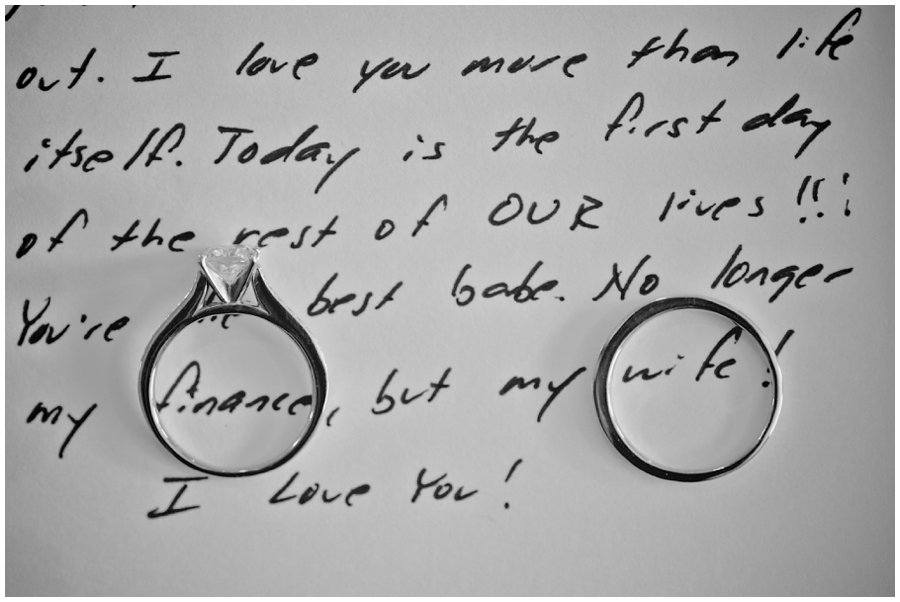 out. I love you more than life
itself. Today is the first day
of the rest of OUR lives!!!
You're the best babe. No longer
my finance, but my wife!
I Love You!